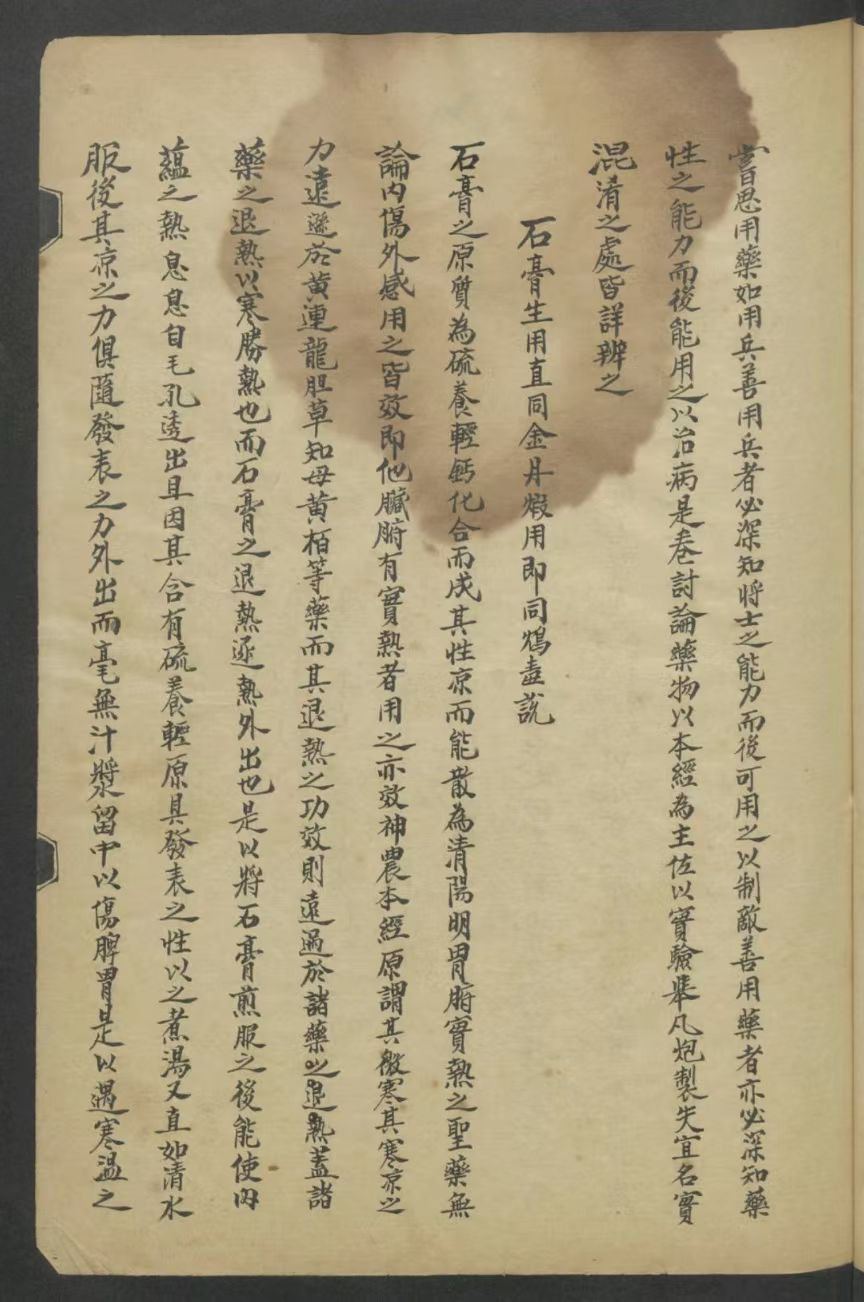 嘗思用藥如用兵善用兵者必深知將士之能力而後可用之以制敵善用藥者亦必深知藥
性之能力而後能用之以治病是卷討論藥物以本經為主佐以實驗舉凡炮製失宜名實
混淆之處皆詳辨之
石膏生用直同金丹煆用即同鴆毒說
石膏之原質為硫養輕鈣化合而成其性凉而能散為清陽明胃腑實熱之聖藥無
論內傷外感用之皆效即他臟腑有實熱者用之亦效神農本經原謂其微寒其寒凉之
力遠遜於黄連龍胆草知母黄栢等藥而其退熱之功效則遠過於諸藥之退熱蓋諸
藥之退熱以寒勝熱也而石膏之退熱逐熱外出也是以將石膏煎服之後能使內
蘊之熱息息自毛孔透出且因其含有硫養輕原具發表之性以之煮湯又直如清水
服後其凉之力俱隨發表之力外出而毫無汁漿留中以傷脾胃是以遇寒溫之